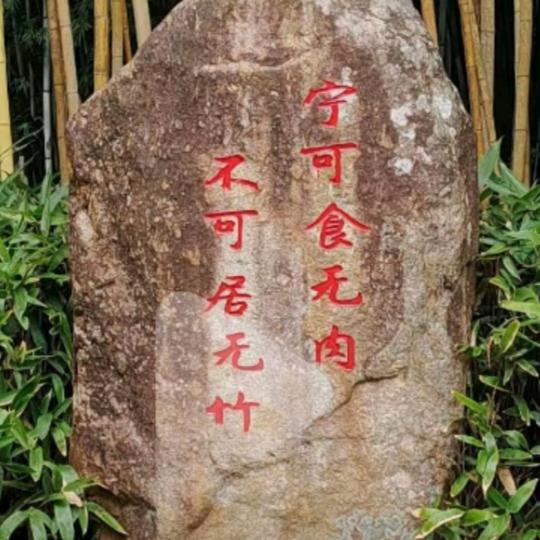 宁可食无肉
不可居无竹